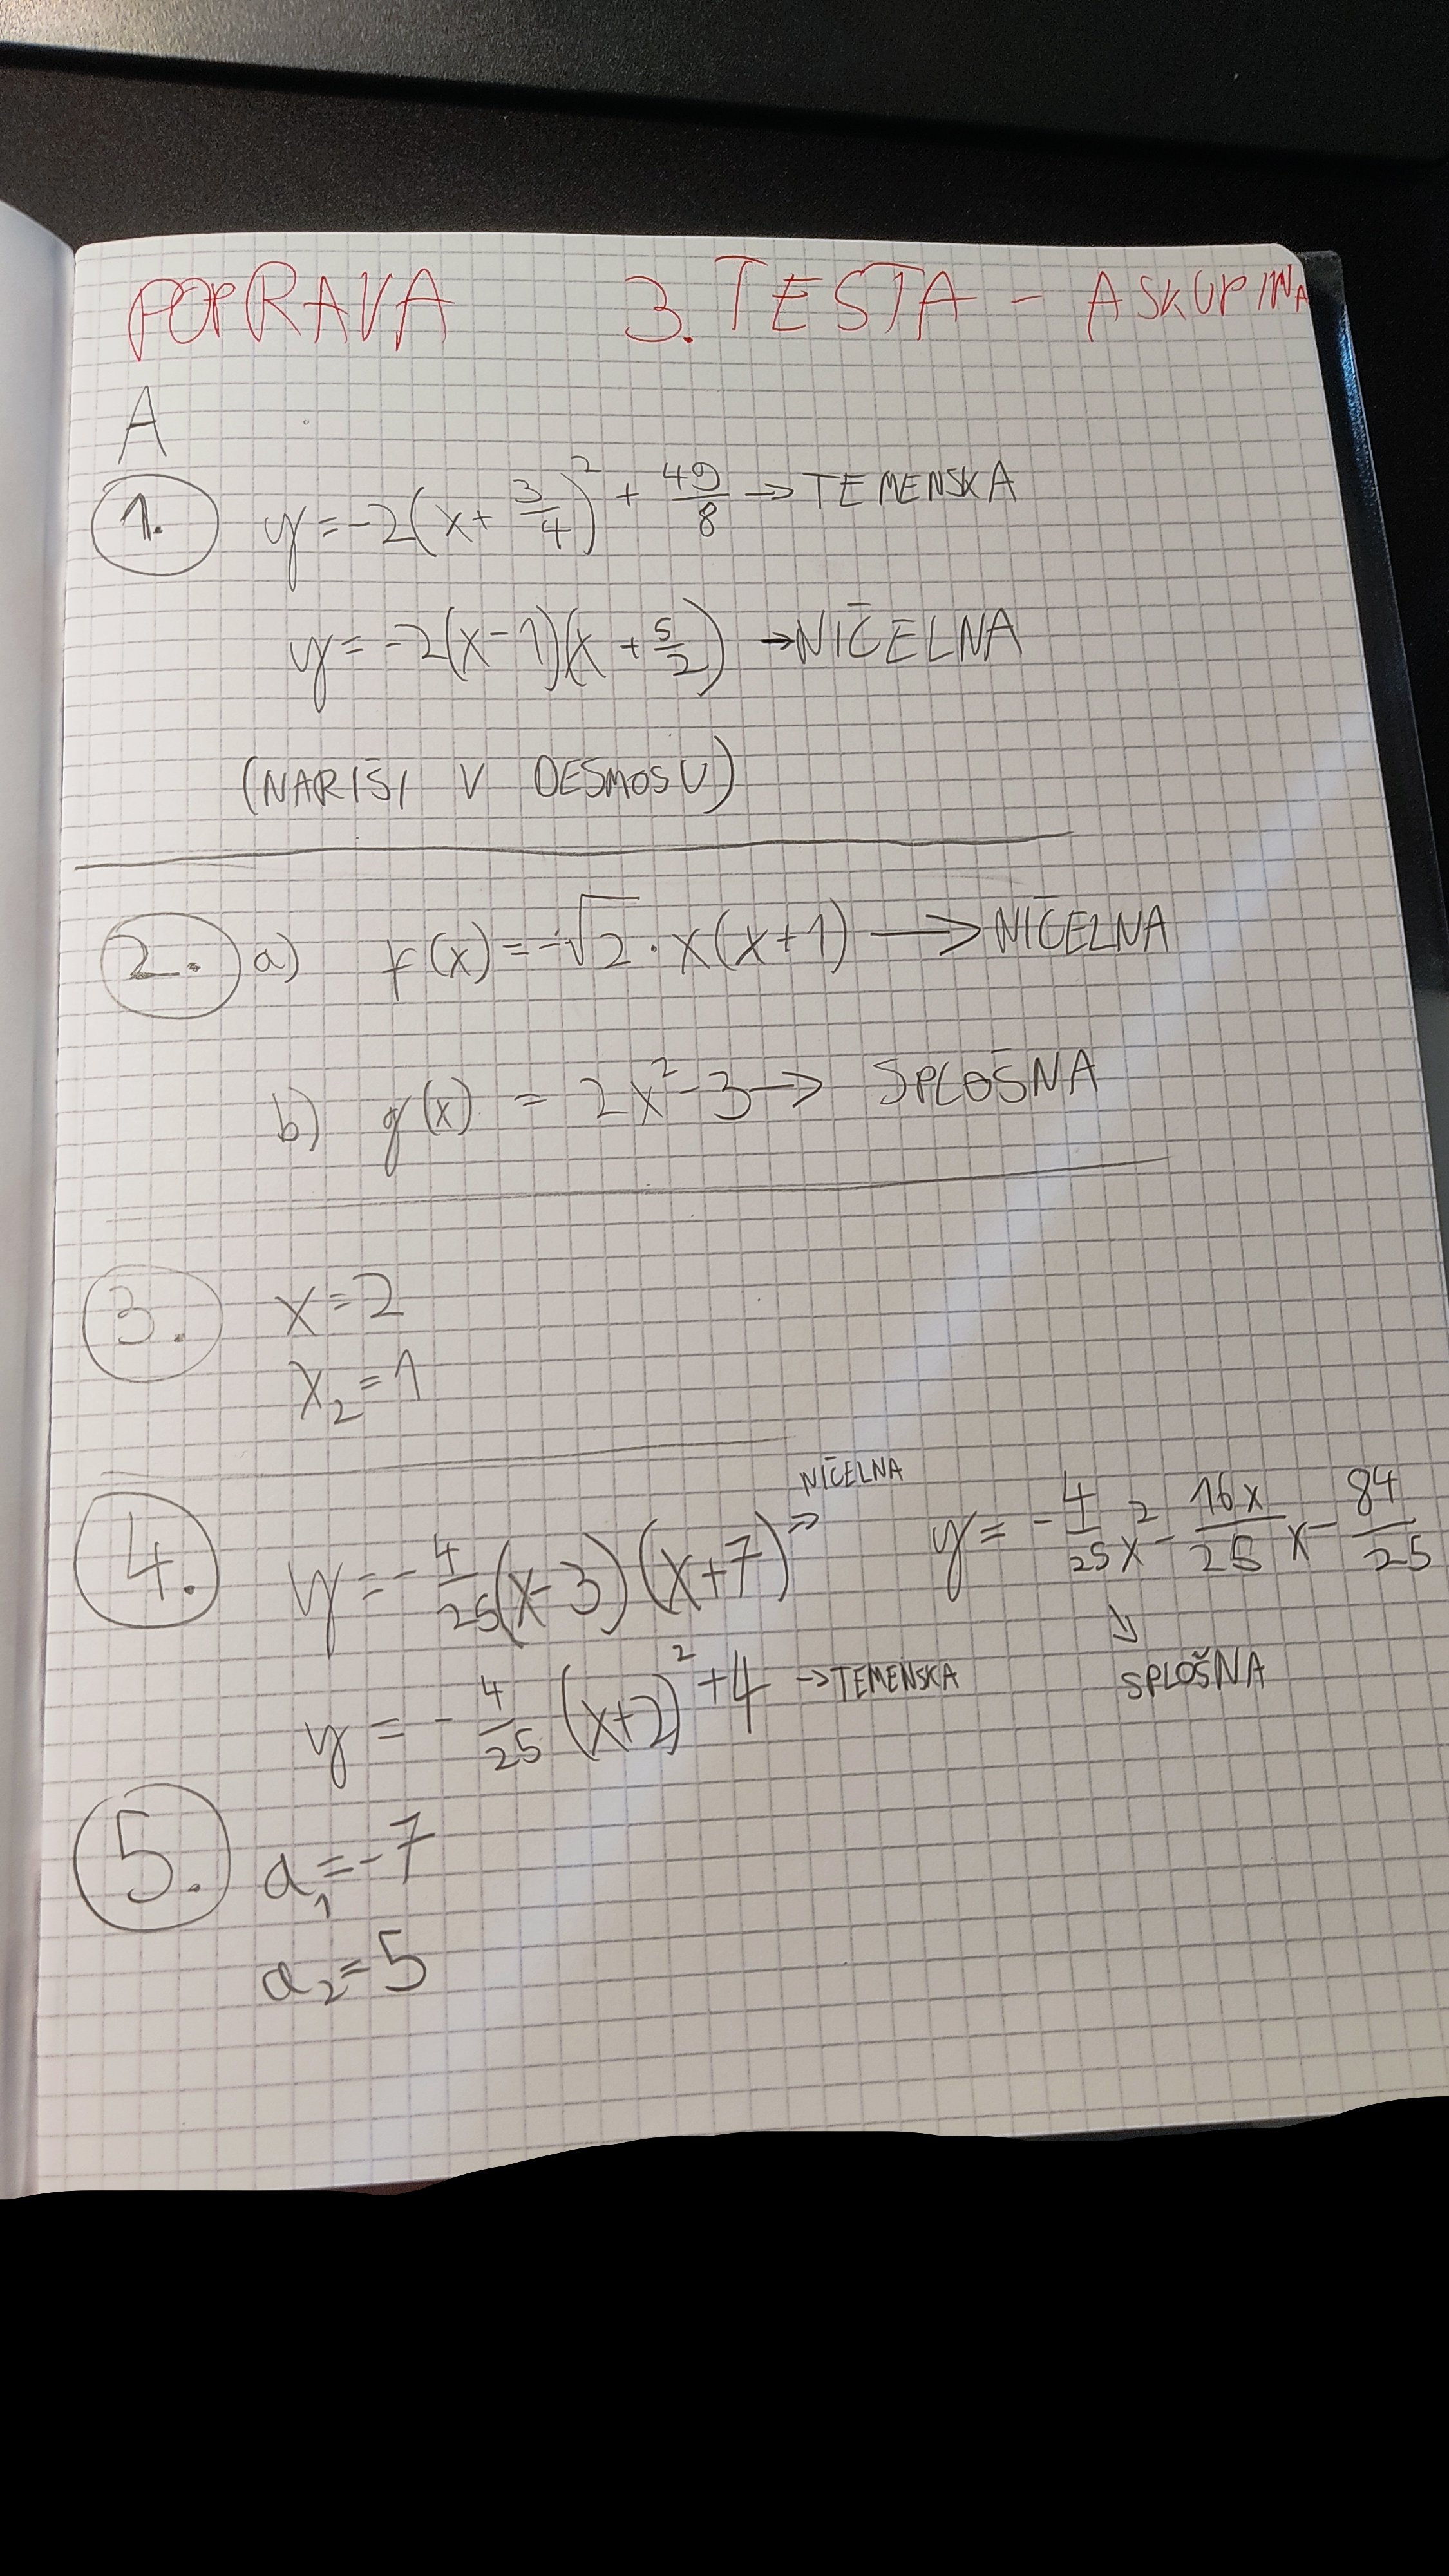 POPRAVA 3. TESTA - A SKUPINA
A
1. y = -2(x + 3/4)² + 49/8 → TEMENSKA
y = -2(x - 1)(x + 5/2) → NIČELNA
(NARIŠI V DESMOSU)
2. a) f(x) = -√2 · x(x+1) → NIČELNA
b) g(x) = 2x² - 3 → SPLOŠNA
3. x = 2
x₂ = 1
4. y = -4/25(x-3)(x+7) → NIČELNA
y = -4/25x² - 16x/25x - 84/25
↓
SPLOŠNA
y = -4/25(x+2)² + 4 → TEMENSKA
5. a₁ = -7
a₂ = 5